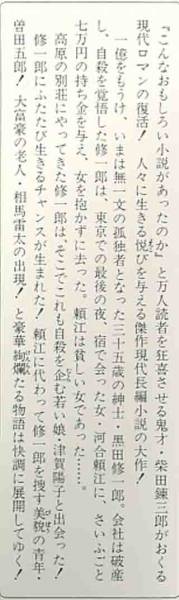 『こんなおもしろい小説があったのか』と万人読者を狂喜させる鬼才・柴田錬三郎がおくる
現代ロマンの復活！　人々に生きる悦びを与える傑作現代長編小説の大作！
一億をもうけ、いまは無一文の孤独者となった三十五歳の紳士・黒田修一郎。会社は破産
し、自殺を覚悟した修一郎は、東京での最後の夜、宿で会った女・河合頼江に、さいふごと
七万円の持ち金を与え、女を抱かずに去った。頼江は貧しい女であった……。
高原の別荘にやってきた修一郎は、そこでこれも自殺を企む若い娘・津賀陽子と出会った！
修一郎にふたたび生きるチャンスが生まれた！　頼江に代わって修一郎を捜す美貌の青年・
曽田五郎！　大富豪の老人・相馬雷太の出現！　と豪華絢爛たる物語は快調に展開してゆく！